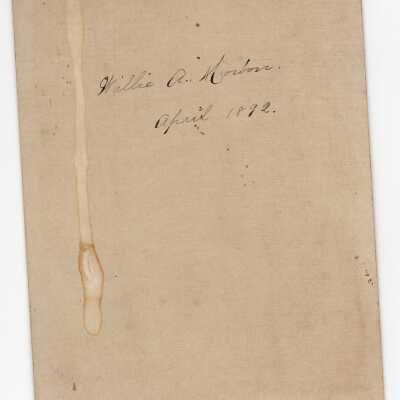 Willie A. Morton.
April 1892.